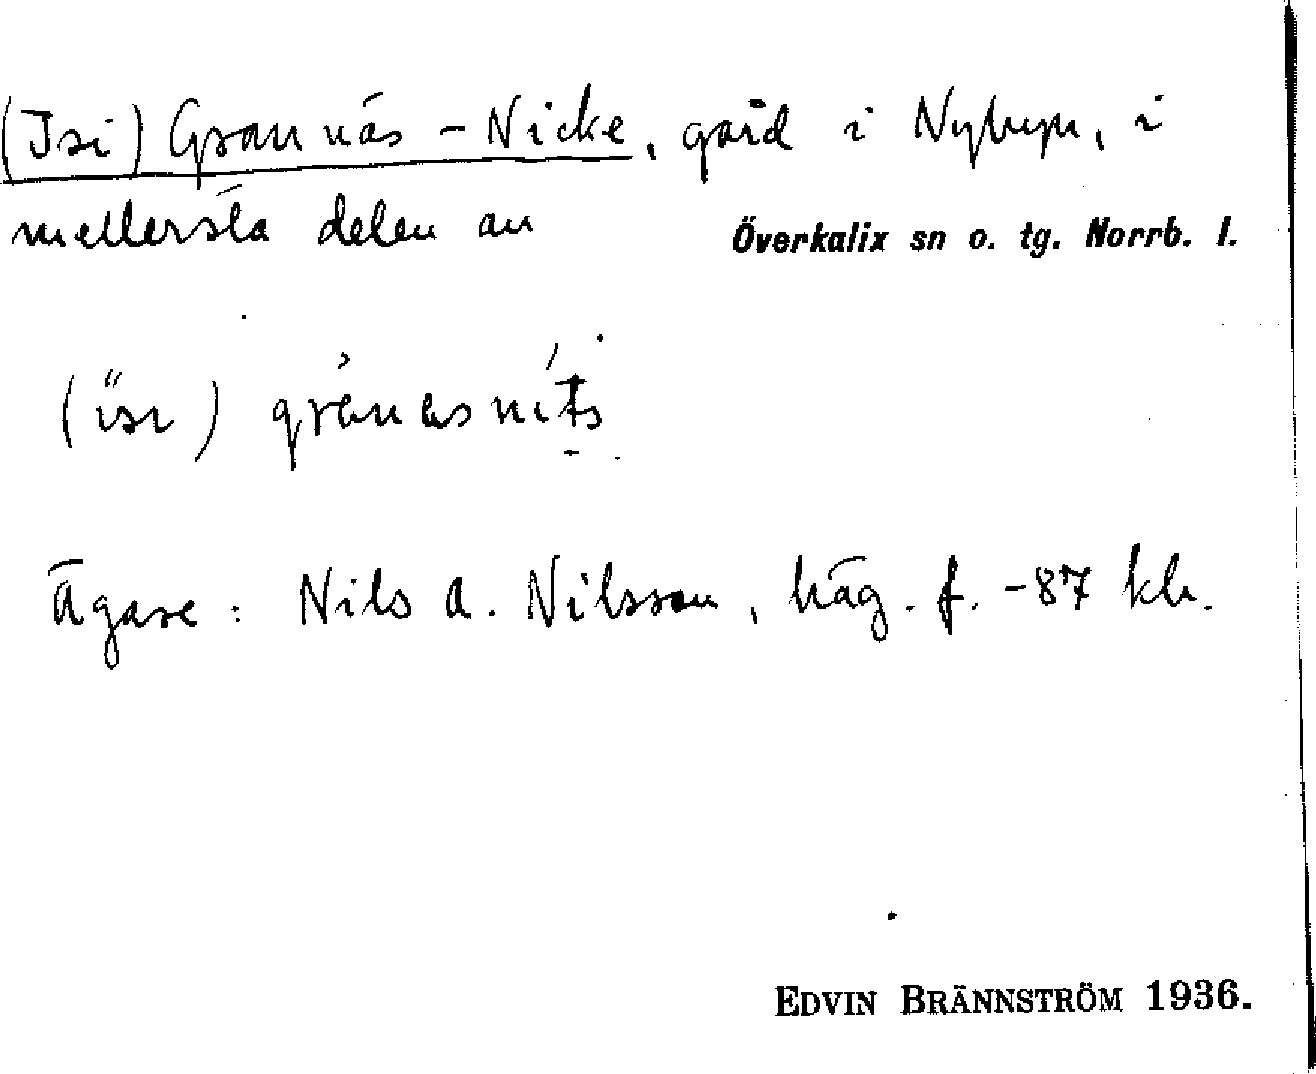 (Isi) Grannäs-Nicke, gård i Nybyn, i
mellersta delen av Överkalix sn o. tg. Norrb. l.
Ägare: Nils A. Nilsson, häg. f. -87 kh.
EDVIN BRÄNNSTRÖM 1936.